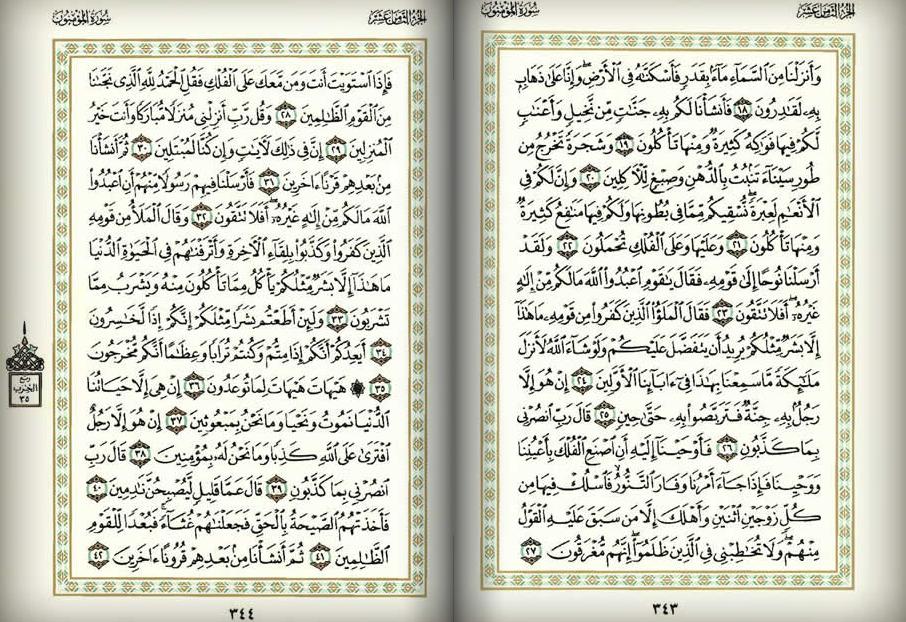 الجزء الثامن عشر
سورة المؤمنون
وَأَنزَلْنَا مِنَ السَّمَاءِ مَاءً بِقَدَرٍ فَأَسْكَنَّاهُ فِي الْأَرْضِ وَإِنَّا عَلَى ذَهَابٍ
بِهِ لَقَادِرُونَ ١٨ فَأَنشَأْنَا لَكُم بِهِ جَنَّاتٍ مِّن نَّخِيلٍ وَأَعْنَابٍ
لَّكُمْ فِيهَا فَوَاكِهُ كَثِيرَةٌ وَمِنْهَا تَأْكُلُونَ ١٩ وَشَجَرَةً تَخْرُجُ مِن
طُورِ سَيْنَاءَ تَنبُتُ بِالدُّهْنِ وَصِبْغٍ لِّلْآكِلِينَ ٢٠ وَإِنَّ لَكُمْ فِي
الْأَنْعَامِ لَعِبْرَةً نُّسْقِيكُم مِّمَّا فِي بُطُونِهَا وَلَكُمْ فِيهَا مَنَافِعُ كَثِيرَةٌ
وَمِنْهَا تَأْكُلُونَ ٢١ وَعَلَيْهَا وَعَلَى الْفُلْكِ تُحْمَلُونَ ٢٢ وَلَقَدْ
أَرْسَلْنَا نُوحًا إِلَى قَوْمِهِ فَقَالَ يَاقَوْمِ اعْبُدُوا اللَّهَ مَا لَكُم مِّنْ إِلَهٍ
غَيْرُهُ أَفَلَا تَتَّقُونَ ٢٣ فَقَالَ الْمَلَؤُا الَّذِينَ كَفَرُوا مِن قَوْمِهِ مَا هَذَا
إِلَّا بَشَرٌ مِّثْلُكُمْ يُرِيدُ أَن يَتَفَضَّلَ عَلَيْكُمْ وَلَوْ شَاءَ اللَّهُ لَأَنزَلَ
مَلَائِكَةً مَّا سَمِعْنَا بِهَذَا فِي آبَائِنَا الْأَوَّلِينَ ٢٤ إِنْ هُوَ إِلَّا
رَجُلٌ بِهِ جِنَّةٌ فَتَرَبَّصُوا بِهِ حَتَّى حِينٍ ٢٥ قَالَ رَبِّ انصُرْنِي
بِمَا كَذَّبُونِ ٢٦ فَأَوْحَيْنَا إِلَيْهِ أَنِ اصْنَعِ الْفُلْكَ بِأَعْيُنِنَا
وَوَحْيِنَا فَإِذَا جَاءَ أَمْرُنَا وَفَارَ التَّنُّورُ فَاسْلُكْ فِيهَا مِن
كُلٍّ زَوْجَيْنِ اثْنَيْنِ وَأَهْلَكَ إِلَّا مَن سَبَقَ عَلَيْهِ الْقَوْلُ
مِنْهُمْ وَلَا تُخَاطِبْنِي فِي الَّذِينَ ظَلَمُوا إِنَّهُم مُّغْرَقُونَ ٢٧
٣٤٣
الجزء الثامن عشر
سورة المؤمنون
فَإِذَا اسْتَوَيْتَ أَنتَ وَمَن مَّعَكَ عَلَى الْفُلْكِ فَقُلِ الْحَمْدُ لِلَّهِ الَّذِي نَجَّانَا
مِنَ الْقَوْمِ الظَّالِمِينَ ٢٨ وَقُل رَّبِّ أَنزِلْنِي مُنزَلًا مُّبَارَكًا وَأَنتَ خَيْرُ
الْمُنزِلِينَ ٢٩ إِنَّ فِي ذَلِكَ لَآيَاتٍ وَإِن كُنَّا لَمُبْتَلِينَ ٣٠ ثُمَّ أَنشَأْنَا
مِن بَعْدِهِمْ قَرْنًا آخَرِينَ ٣١ فَأَرْسَلْنَا فِيهِمْ رَسُولًا مِّنْهُمْ أَنِ اعْبُدُوا
اللَّهَ مَا لَكُم مِّنْ إِلَهٍ غَيْرُهُ أَفَلَا تَتَّقُونَ ٣٢ وَقَالَ الْمَلَأُ مِن قَوْمِهِ
الَّذِينَ كَفَرُوا وَكَذَّبُوا بِلِقَاءِ الْآخِرَةِ وَأَتْرَفْنَاهُمْ فِي الْحَيَاةِ الدُّنْيَا
مَا هَذَا إِلَّا بَشَرٌ مِّثْلُكُمْ يَأْكُلُ مِمَّا تَأْكُلُونَ مِنْهُ وَيَشْرَبُ مِمَّا
تَشْرَبُونَ ٣٣ وَلَئِنْ أَطَعْتُم بَشَرًا مِّثْلَكُمْ إِنَّكُمْ إِذًا لَّخَاسِرُونَ
٣٤ أَيَعِدُكُمْ أَنَّكُمْ إِذَا مِتُّمْ وَكُنتُمْ تُرَابًا وَعِظَامًا أَنَّكُم مُّخْرَجُونَ
٣٥ ۞ هَيْهَاتَ هَيْهَاتَ لِمَا تُوعَدُونَ ٣٦ إِنْ هِيَ إِلَّا حَيَاتُنَا
الدُّنْيَا نَمُوتُ وَنَحْيَا وَمَا نَحْنُ بِمَبْعُوثِينَ ٣٧ إِنْ هُوَ إِلَّا رَجُلٌ
افْتَرَى عَلَى اللَّهِ كَذِبًا وَمَا نَحْنُ لَهُ بِمُؤْمِنِينَ ٣٨ قَالَ رَبِّ
انصُرْنِي بِمَا كَذَّبُونِ ٣٩ قَالَ عَمَّا قَلِيلٍ لَّيُصْبِحُنَّ نَادِمِينَ ٤٠
فَأَخَذَتْهُمُ الصَّيْحَةُ بِالْحَقِّ فَجَعَلْنَاهُمْ غُثَاءً فَبُعْدًا لِّلْقَوْمِ
الظَّالِمِينَ ٤١ ثُمَّ أَنشَأْنَا مِن بَعْدِهِمْ قُرُونًا آخَرِينَ ٤٢
ربع
الحزب
٣٥
٣٤٤